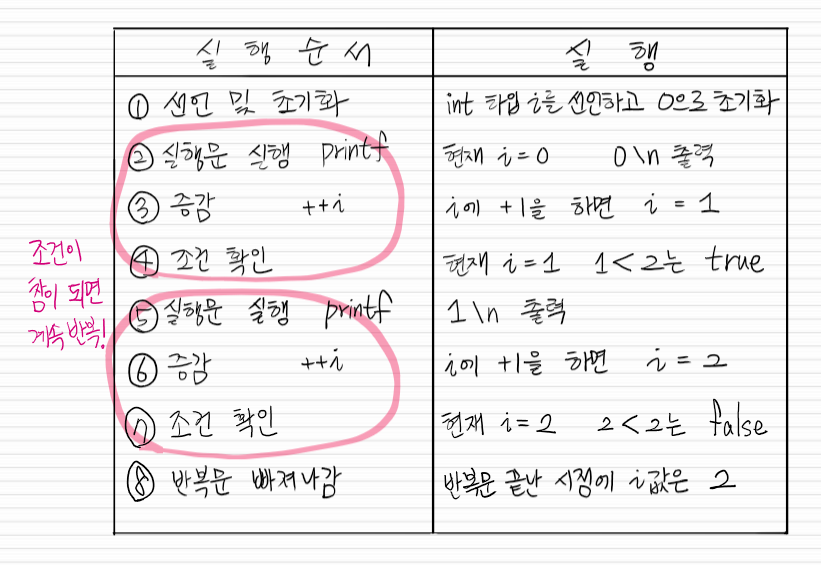 실행순서 실행
① 선언 및 초기화 int 타입 i를 선언하고 0으로 초기화
② 실행문 실행 printf 현재 i=0 0\n 출력
③ 증감 ++i i에 +1을 하면 i = 1
④ 조건 확인 현재 i=1 1<2는 true
조건이
참이 되면
계속 반복!
⑤ 실행문 실행 printf 1\n 출력
⑥ 증감 ++i i에 +1을 하면 i = 2
⑦ 조건 확인 현재 i=2 2<2는 false
⑧ 반복문 빠져나감 반복문 끝난 시점에 i값은 2